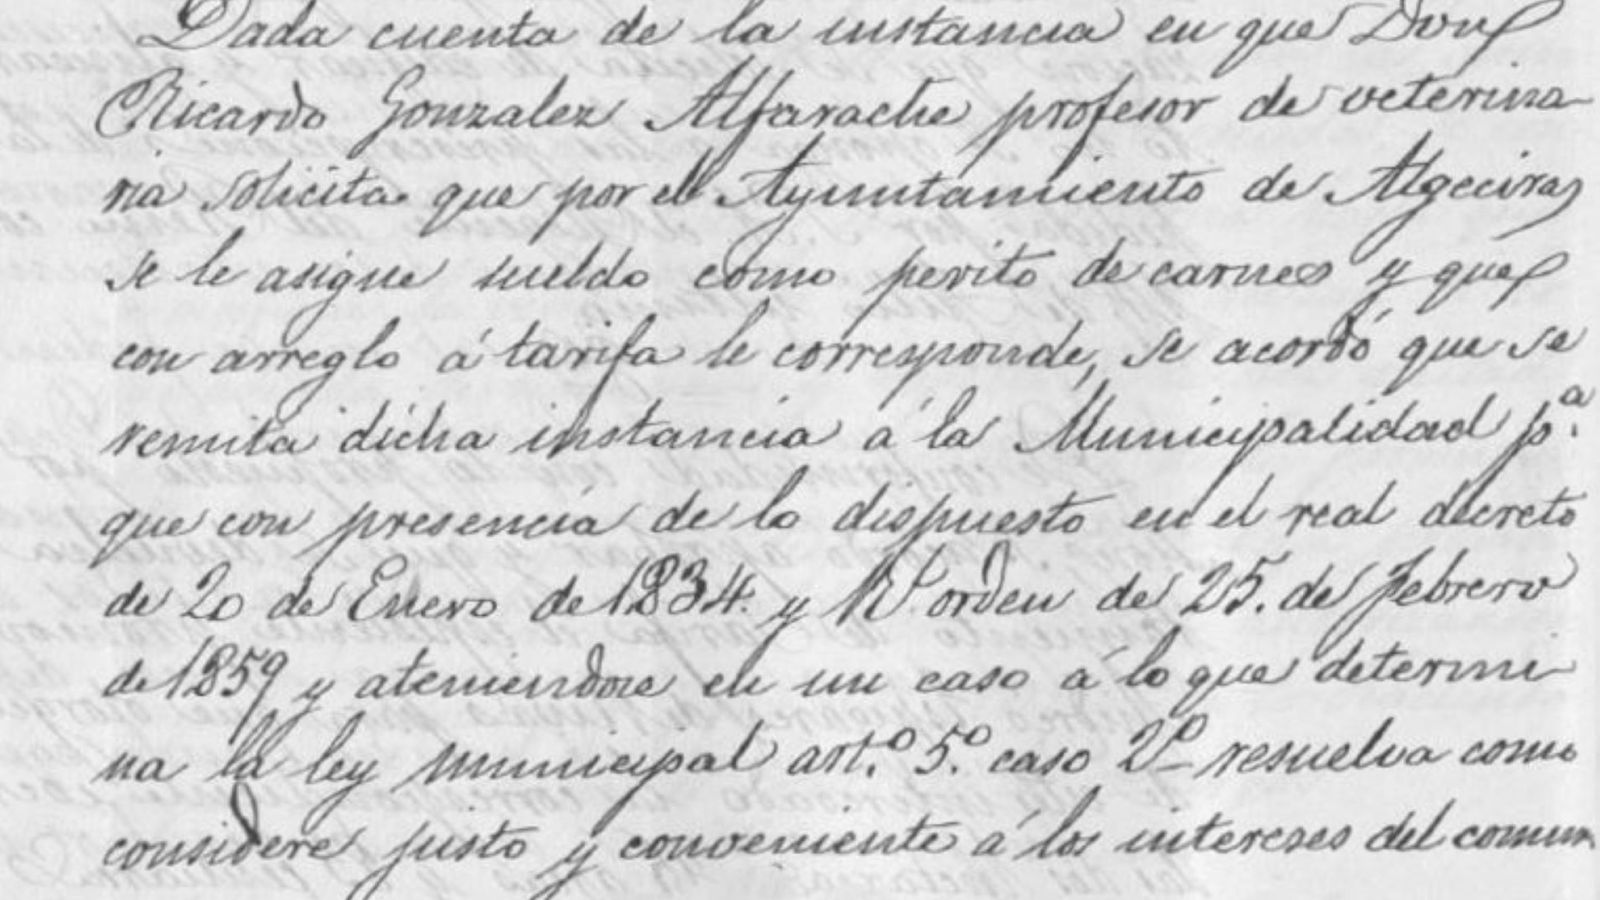 Dada cuenta de la instancia en que Don
Ricardo Gonzalez Alfarache profesor de veterina
ria solicita que por el Ayuntamiento de Algeciras
se le asigne sueldo como perito de carnes y que
con arreglo á tarifa le corresponde, se acordó que se
remita dicha instancia á la Municipalidad p.ª
que con presencia de lo dispuesto en el real decreto
de 20 de Enero de 1834. y R.l orden de 25. de Febrero
de 1859 y ateniendose en un caso á lo que determi
na la ley municipal art.º 5.º caso 2º resuelva como
considere justo y conveniente á los intereses del comun